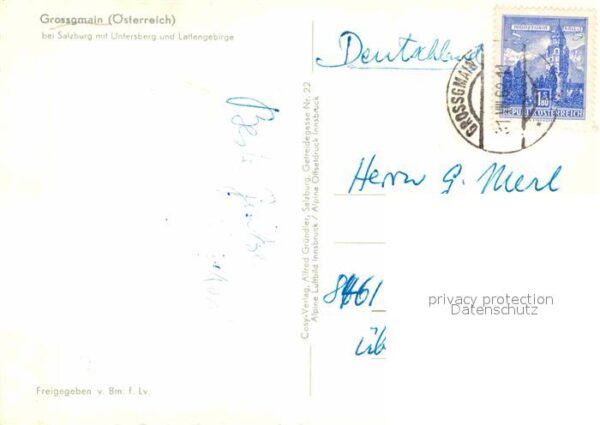 Grossgmain (Österreich)
bei Salzburg mit Untersberg und Lattengebirge
Deutschland
REPUBLIK ÖSTERREICH
GROSSGMAIN
Beste Grüße
Herrn G. Merl
8461
privacy protection
Datenschutz
Cosy-Verlag, Alfred Gründler, Salzburg, Getreidegasse Nr. 22
Alpine Luftbild Innsbruck / Alpine Offsetdruck Innsbruck
Freigegeben v. Bm. f. Lv.